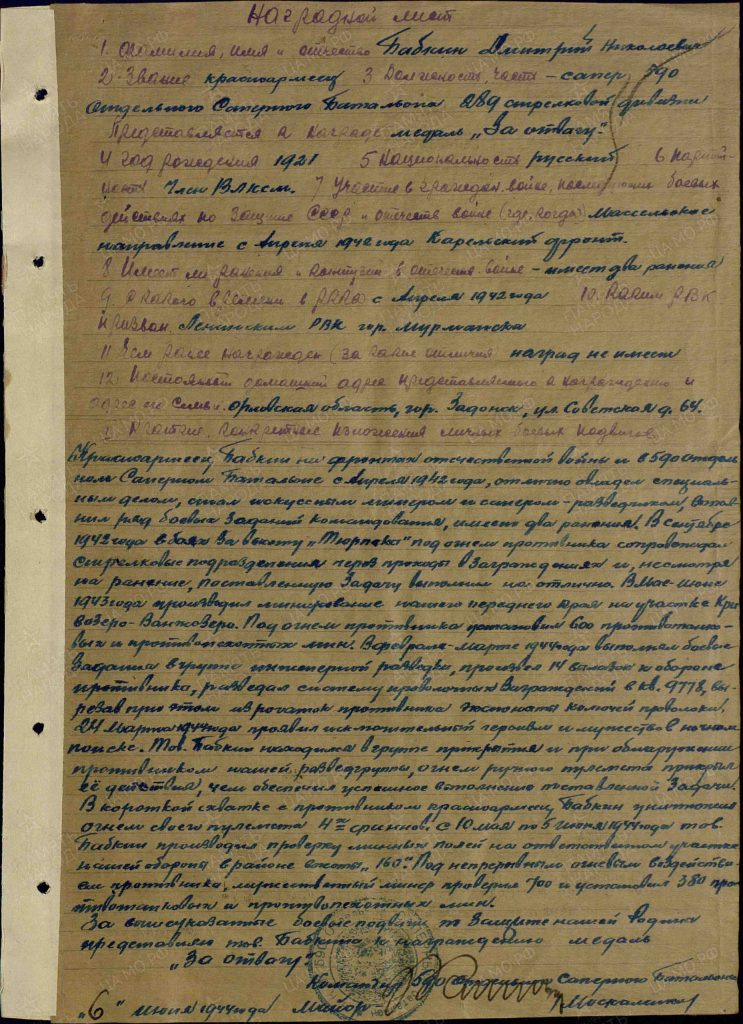 Наградной лист
1. Фамилия, имя и отчество Бабкин Дмитрий Николаевич
2. Звание красноармеец 3 Должность, часть – сапер, 590
отдельного Саперного Батальона 289 стрелковой дивизии
Представляется к награде медаль „За отвагу".
4 год рождения 1921 5 Национальность русский 6 партий-
ность Член ВЛКСМ. 7 Участие в граждан. войне, последующих боевых
действиях по защите СССР и отечеств войне (где, когда) Масельское
направление с Апреля 1942 года Карельский фронт.
8 Имеет ли ранения и контузии в отечеств. войне – имеет два ранения
9. с какого времени в РККА с Апреля 1942 года 10. Каким РВК
призван. Ленинским РВК гор. Мурманска
11 Чем ранее награжден (за какие отличия наград не имеет
12. Постоянный домашний адрес представляемого к награждению и
адрес его семьи. Орловская область, гор. Задонск, ул. Советская д. 64.
Краткое, конкретное изложение личных боевых подвигов
Красноармеец Бабкин на фронтах отечественной войны и в 590 отдель
ном Саперном Батальоне с Апреля 1942 года, отлично овладел специаль-
ным делом, стал искуссным минером и сапером-разведчиком, выпол-
нил ряд боевых заданий командования, имеет два ранения. В сентябре
1942 года в боях за высоту под огнем противника сопровождал
стрелковые подразделения через проходы в заграждениях и, несмотря
на ранение, поставленную задачу выполнил на отлично. В Мае-июне
1943 года производил минирование нашего переднего края на участке Кри
возеро-Ванжозеро. Под огнем противника установил 600 противотанко-
вых и противопехотных мин. В феврале-марте 1944 года выполнял боевые
задания в группе инженерной разведки, произвел 14 вылазок к обороне
противника, разведал систему проволочных заграждений в кв. 9778, вы-
резав при этом из рогаток противника экспонаты колючей проволоки.
24 Марта 1944 года проявил исключительный героизм и мужество в ночном
поиске. Тов. Бабкин находился в группе прикрытия и при обнаружении
противником нашей разведгруппы, огнем ручного пулемета прикрыл
её действия, чем обеспечил успешное выполнение поставленной задачи.
В короткой схватке с противником красноармеец Бабкин уничтожил
огнем своего пулемета 4-х финнов. С 10 мая по 5 июня 1944 года тов.
Бабкин производил проверку минных полей на ответственном участке
нашей обороны в районе высоты „160". Под непрерывным огневым воздействи-
ем противника, мужественный минер проверил 700 и установил 380 про
тивотанковых и противопехотных мин.
За вышеуказанные боевые подвиги по защите нашей Родины
представляю тов. Бабкина к награждению медаль
„За отвагу".
Командир 590 отдельного саперного Батальона
„6" июня 1944 года Майор /Москаленко/